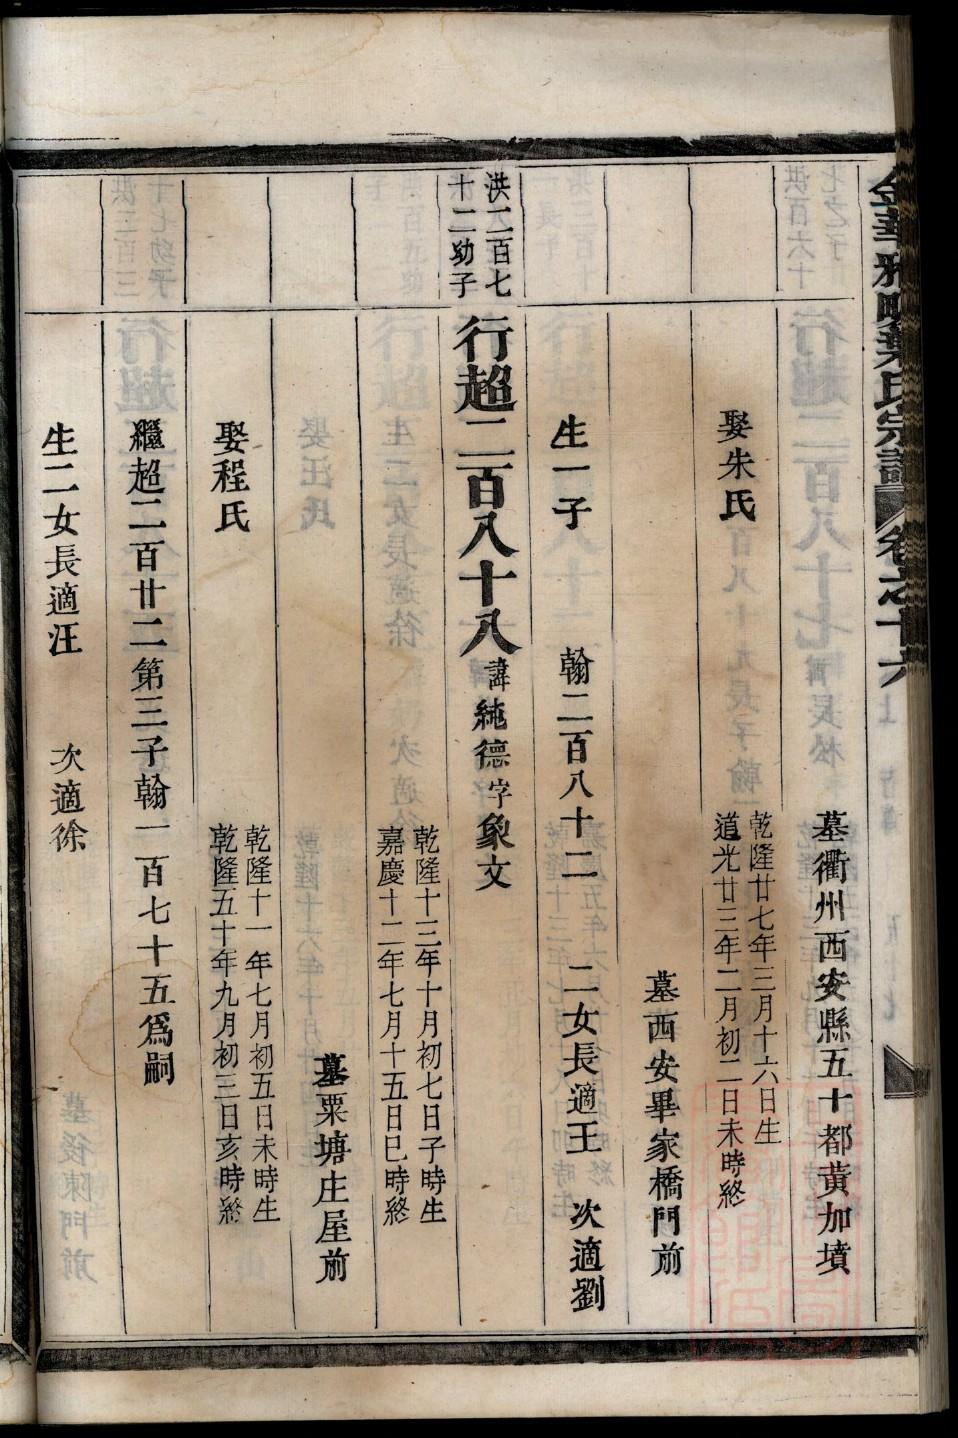 金華雅畈葉氏宗譜 卷之十六
墓衢州西安縣五十都黃加墳
娶朱氏
乾隆廿七年三月十六日生
道光廿三年二月初二日未時終
墓西安畢家橋門前
生一子 翰二百八十二 二女長適王 次適劉
洪二百七
十二幼子
行超二百八十八 諱純德字象文
乾隆十三年十月初七日子時生
嘉慶十二年七月十五日巳時終
墓粟塘庄屋前
娶程氏
乾隆十一年七月初五日未時生
乾隆五十年九月初三日亥時終
繼超二百廿二第三子翰一百七十五爲嗣
生二女長適汪 次適徐